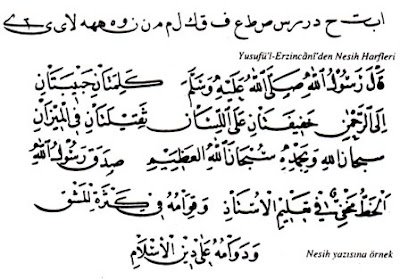 ا ب ت ح د ر س ص ط ع ف ق ك ل م ن و ه ههه لا ى ے
Yusufü'l-Erzincânî'den Nesih Harfleri
قَالَ رَسُولُ اللّٰهِ صَلَّى اللّٰهُ عَلَيْهِ وَسَلَّمَ كَلِمَتَانِ حَبِيبَتَانِ
اِلَى الرَّحْمٰنِ خَفِيفَتَانِ عَلَى اللِّسَانِ ثَقِيلَتَانِ فِي الْمِيزَانِ
سُبْحَانَ اللّٰهِ وَبِحَمْدِهِ سُبْحَانَ اللّٰهِ الْعَظِيمِ صَدَقَ رَسُولُ اللّٰهِ
اَلْخَطُّ مَخْفِيٌّ فِي تَعْلِيمِ الْاُسْتَاذِ وَقِوَامُهُ فِي كَثْرَةِ الْمَشْقِ
وَدَوَامُهُ عَلَى دِينِ الْاِسْلَامِ
Nesih yazısına örnek